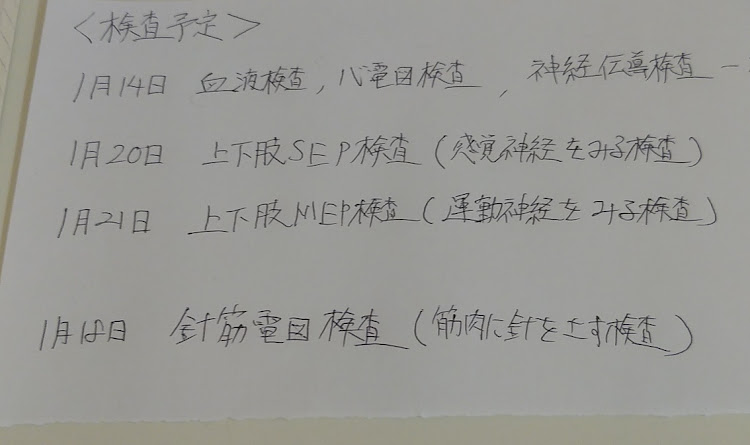 <検査予定>
1月14日 血液検査, 心電図検査, 神経伝導検査
1月20日 上下肢SEP検査(感覚神経をみる検査)
1月21日 上下肢MEP検査(運動神経をみる検査)
1月18日 針筋電図検査(筋肉に針をさす検査)